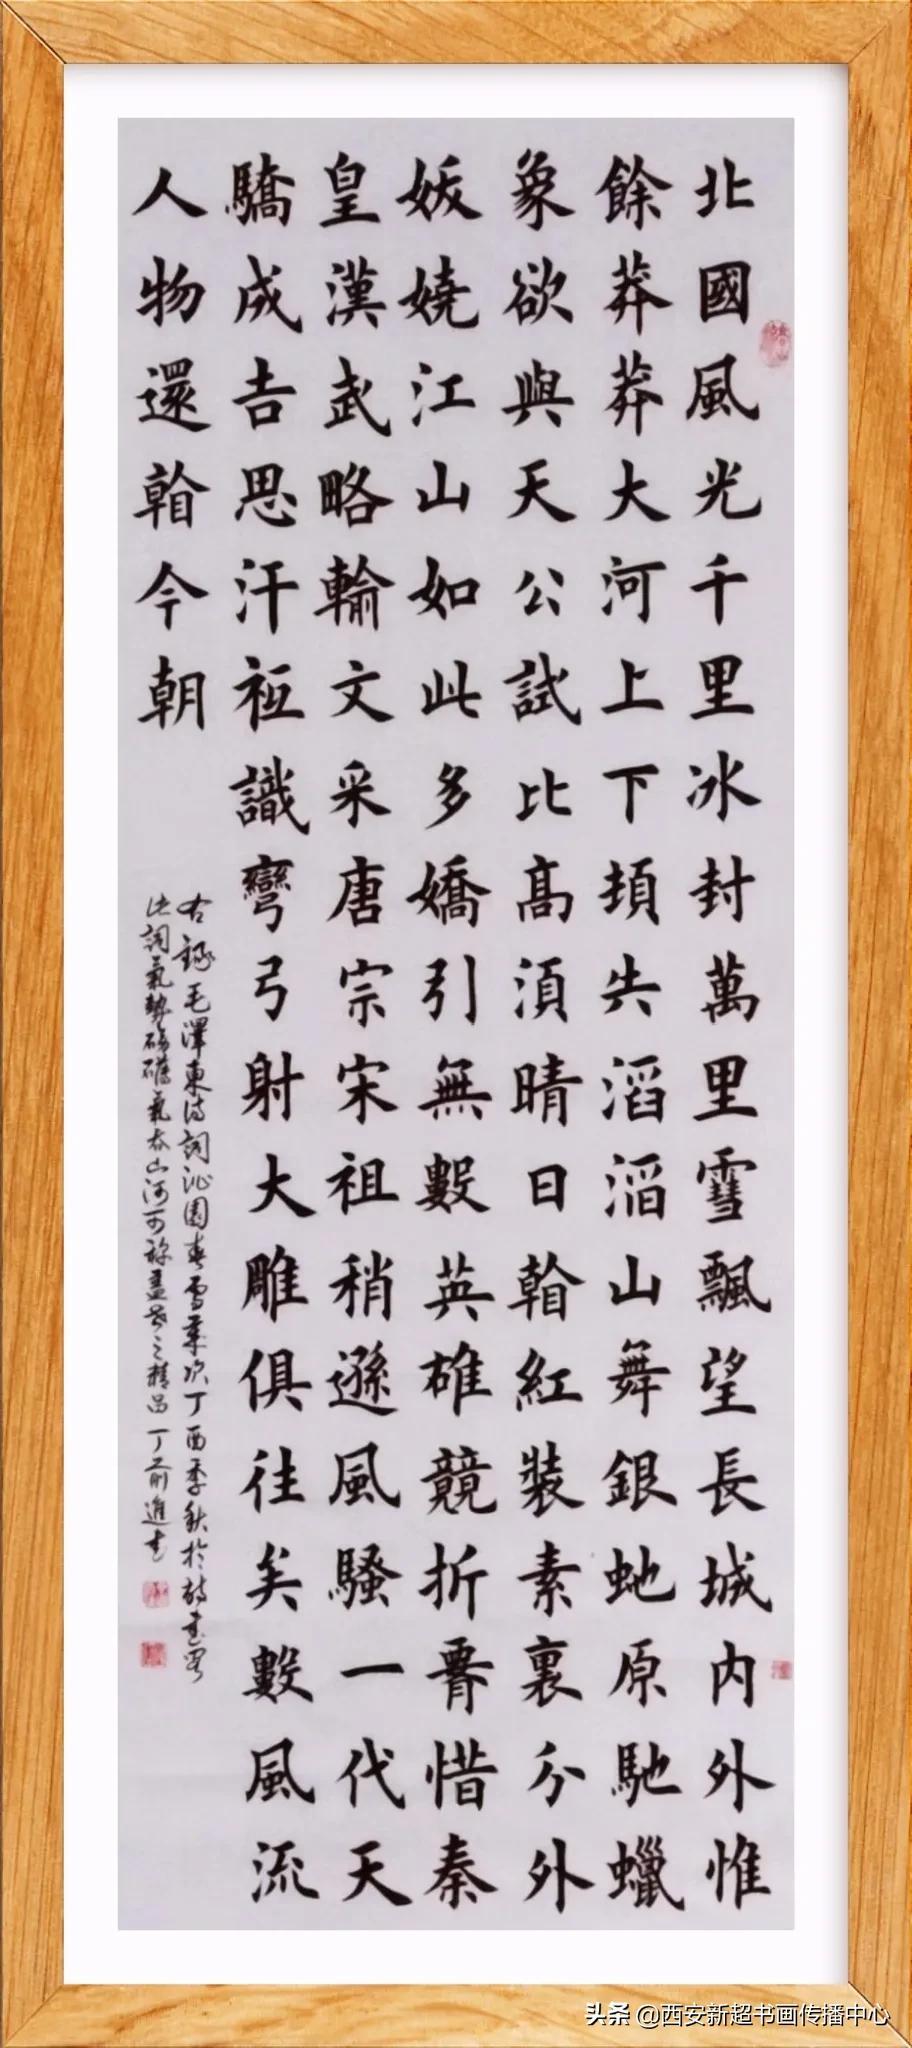 北國風光千里冰封萬里雪飄望長城内外惟
餘莽莽大河上下頓失滔滔山舞銀虵原馳蠟
象欲與天公試比高湏晴日看紅裝素裹分外
妖嬈江山如此多嬌引無數英雄競折腰惜秦
皇漢武略輸文采唐宗宋祖稍遜風騷一代天
驕成吉思汗祗識彎弓射大雕俱往矣數風流
人物還看今朝
右錄毛澤東詩詞沁園春雪歲次丁酉季秋於
此詞氣勢磅礴氣吞山河可稱蓋世之精品丁前進書
头条 @西安新超书画传播中心